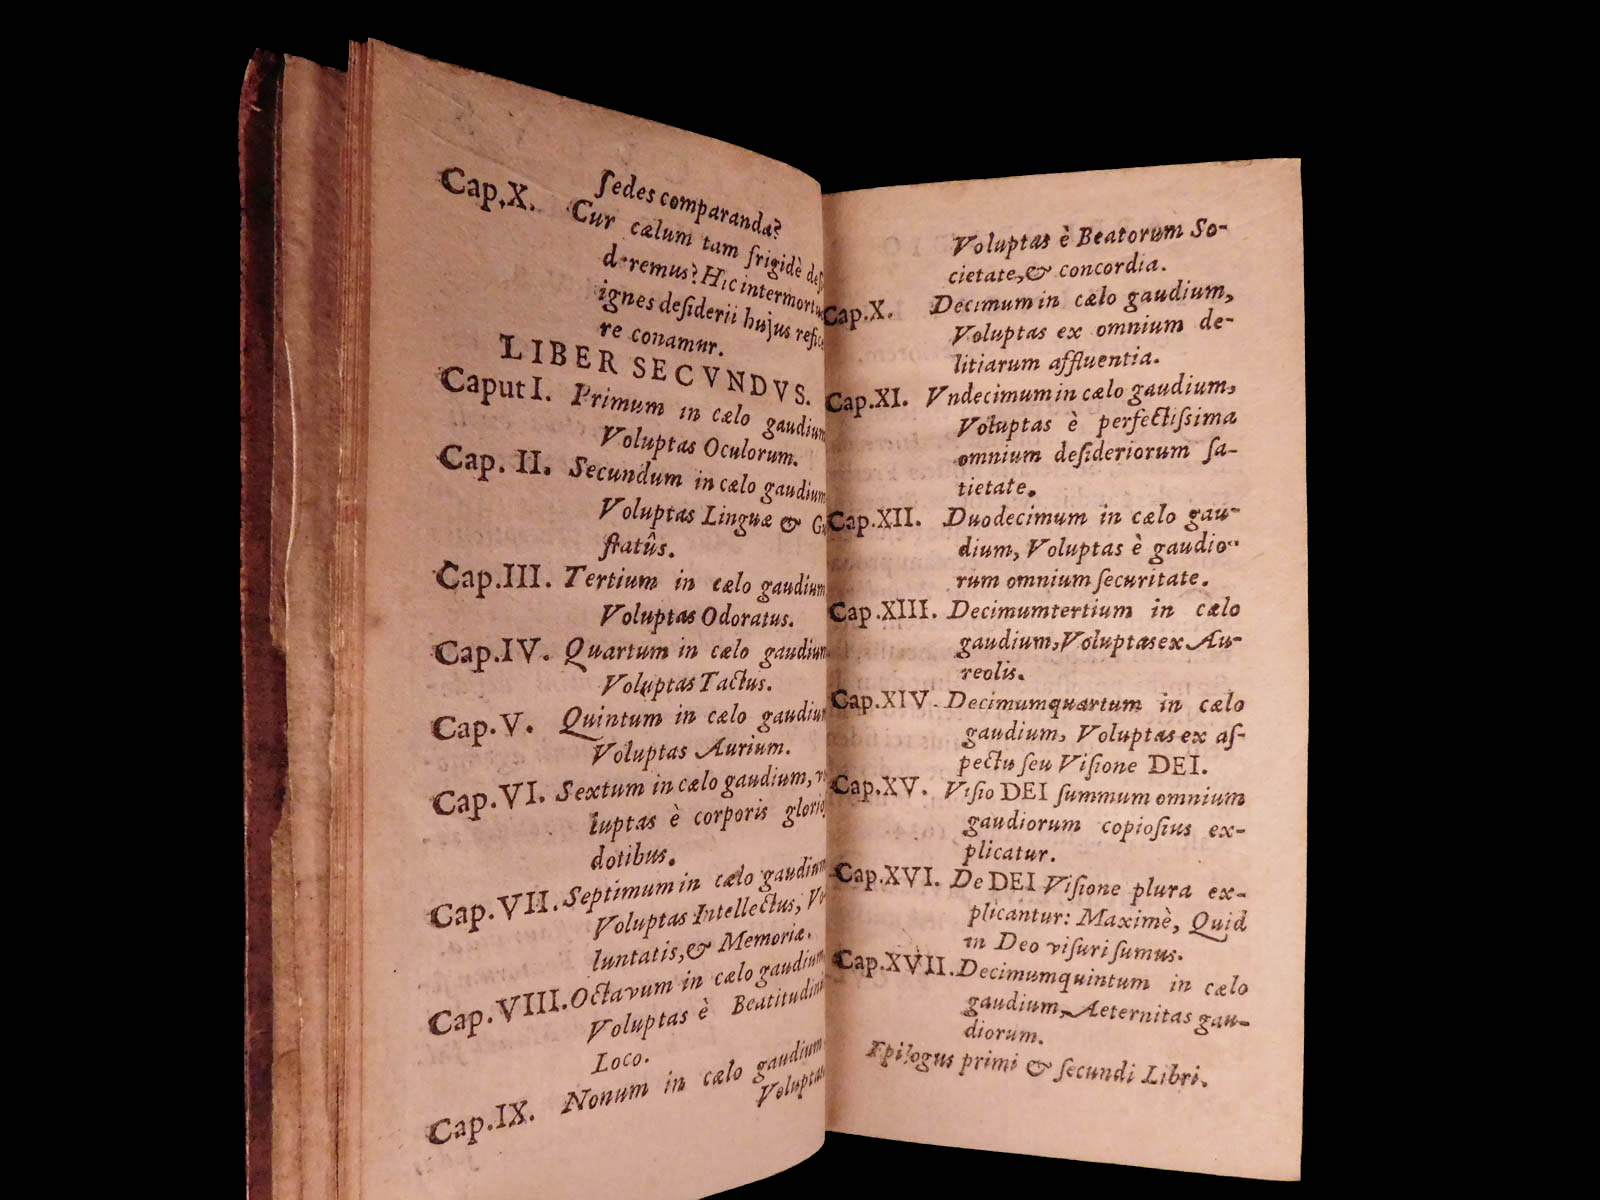 ſedes comparanda?
Cap. X. Cur cælum tam frigidè deſi-
deremus? Hic intermortuos
ignes deſiderii hujus refice-
re conamur.
LIBER SECVNDVS.
Caput I. Primum in cælo gaudium
Voluptas Oculorum.
Cap. II. Secundum in cælo gaudium
Voluptas Linguæ & Gu-
ſtatûs.
Cap. III. Tertium in cælo gaudium
Voluptas Odoratus.
Cap. IV. Quartum in cælo gaudium
Voluptas Tactus.
Cap. V. Quintum in cælo gaudium
Voluptas Aurium.
Cap. VI. Sextum in cælo gaudium, vo-
luptas è corporis glorioſi
dotibus.
Cap. VII. Septimum in cælo gaudium
Voluptas Intellectus, Vo-
luntatis, & Memoriæ.
Cap. VIII. Octavum in cælo gaudium
Voluptas è Beatitudinis
Loco.
Cap. IX. Nonum in cælo gaudium
Voluptas
Voluptas è Beatorum So-
cietate, & concordia.
Cap. X. Decimum in cælo gaudium,
Voluptas ex omnium de-
litiarum affluentia.
Cap. XI. Vndecimum in cælo gaudium,
Voluptas è perfectiſſima
omnium deſideriorum ſa-
tietate.
Cap. XII. Duodecimum in cælo gau-
dium, Voluptas è gaudio-
rum omnium ſecuritate.
Cap. XIII. Decimumtertium in cælo
gaudium, Voluptas ex Au-
reolis.
Cap. XIV. Decimumquartum in cælo
gaudium, Voluptas ex aſ-
pectu ſeu Viſione DEI.
Cap. XV. Viſio DEI ſummum omnium
gaudiorum copioſius ex-
plicatur.
Cap. XVI. De DEI Viſione plura ex-
plicantur: Maximè, Quid
in Deo viſuri ſumus.
Cap. XVII. Decimumquintum in cælo
gaudium, Aeternitas gau-
diorum.
Epilogus primi & ſecundi Libri.